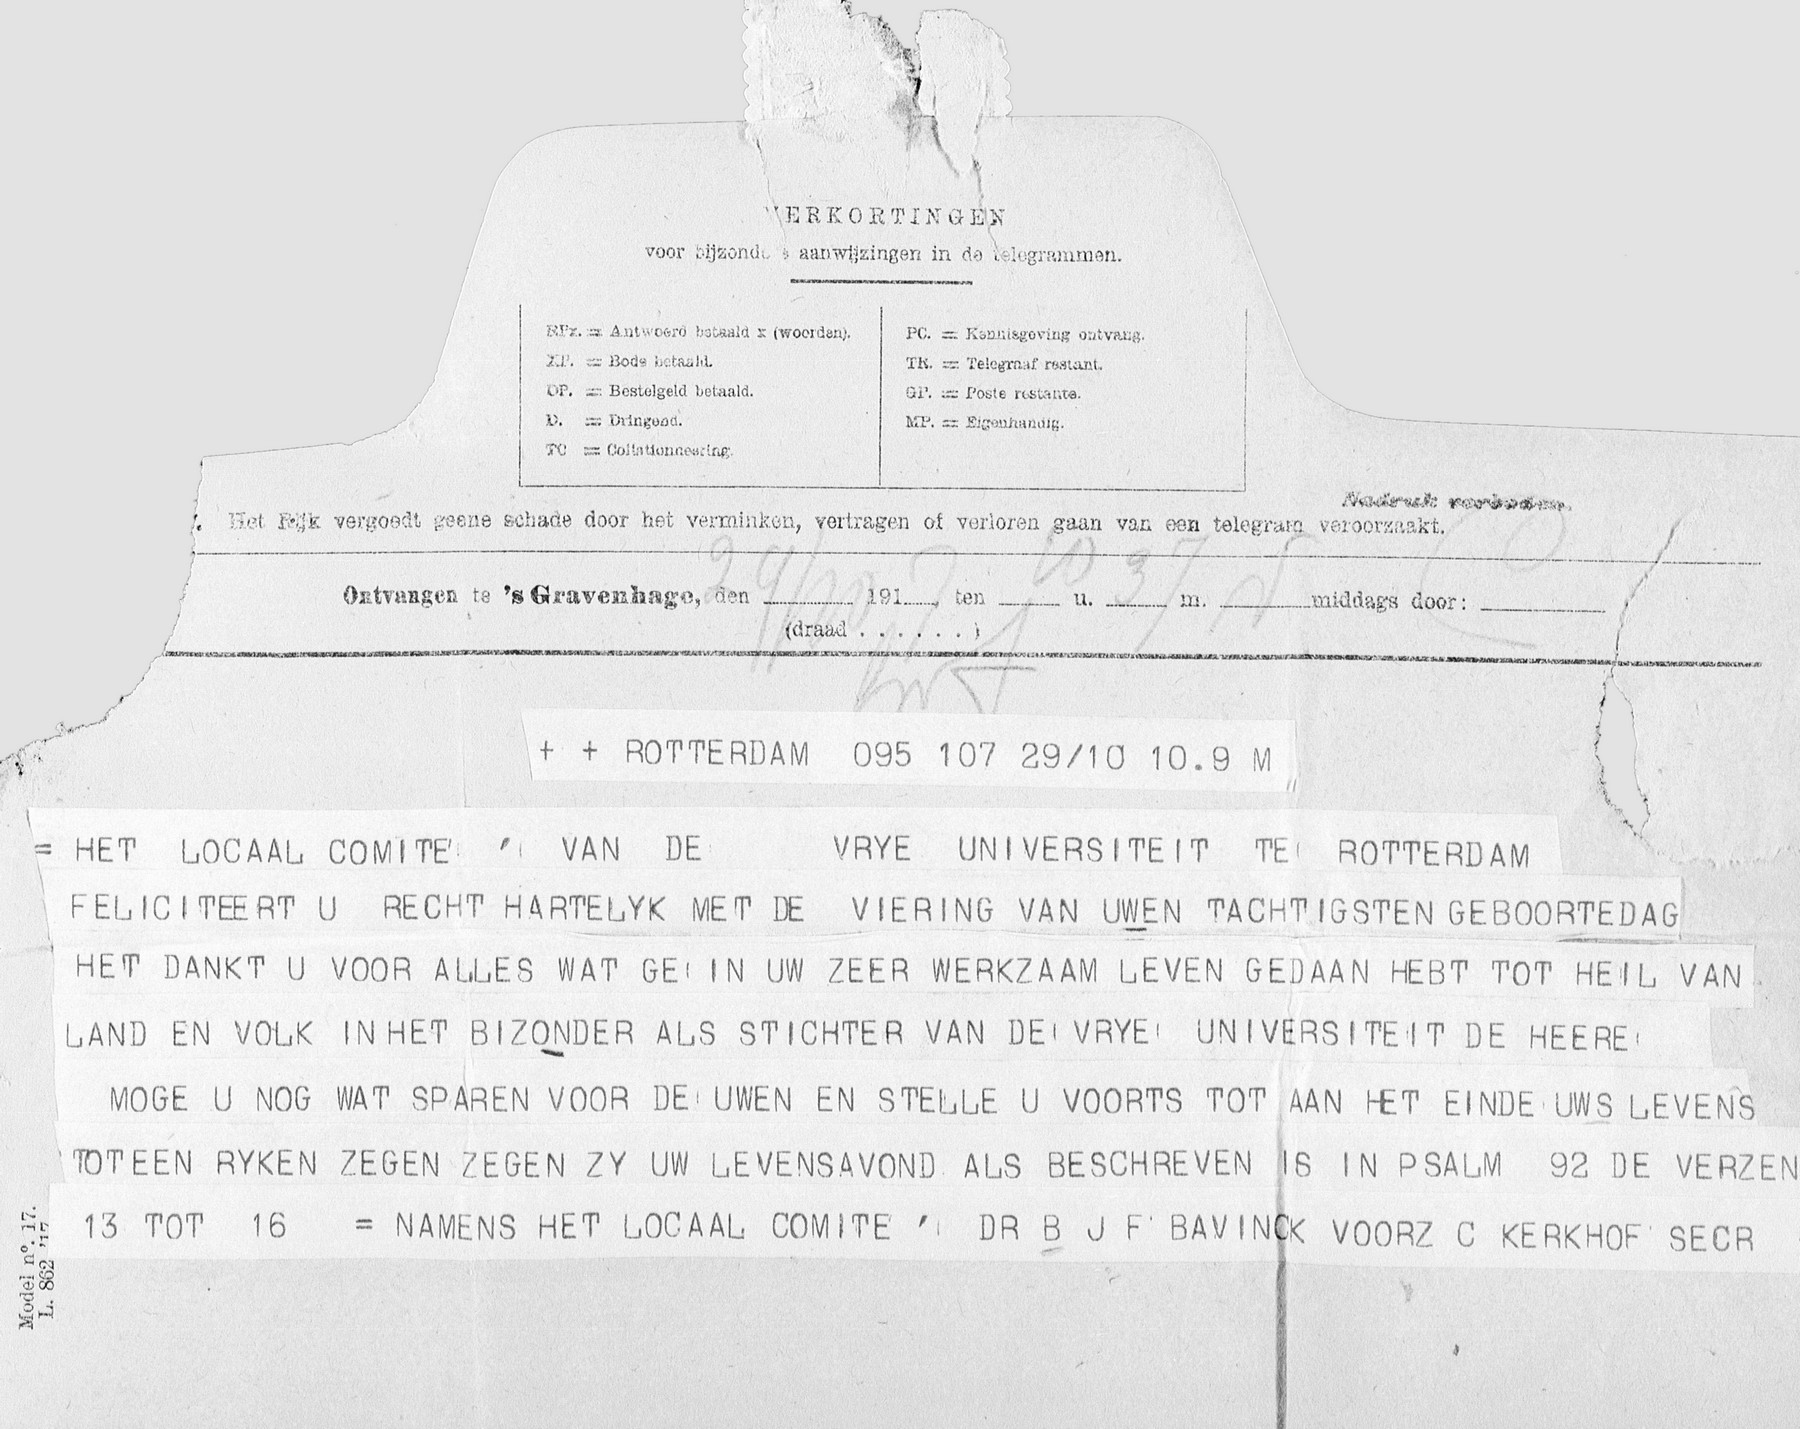 VERKORTINGEN
voor bijzondere aanwijzingen in de telegrammen.
RPx. = Antwoord betaald x (woorden).
XP. = Bode betaald.
OP. = Bestelgeld betaald.
D. = Dringend.
TC = Collationneering.
PC. = Kennisgeving ontvang.
TR. = Telegraaf restant.
GP. = Poste restante.
MP. = Eigenhandig.
Nadruk verboden.
Het Rijk vergoedt geene schade door het verminken, vertragen of verloren gaan van een telegram veroorzaakt.
Ontvangen te 's Gravenhage, den ______ 191__, ten ____ u. ____ m. ______middags door: ______
(draad . . . . . . )
+ + ROTTERDAM 095 107 29/10 10.9 M
= HET LOCAAL COMITE ' VAN DE VRYE UNIVERSITEIT TE ROTTERDAM
FELICITEERT U RECHT HARTELYK MET DE VIERING VAN UWEN TACHTIGSTEN GEBOORTEDAG
HET DANKT U VOOR ALLES WAT GE IN UW ZEER WERKZAAM LEVEN GEDAAN HEBT TOT HEIL VAN
LAND EN VOLK IN HET BIZONDER ALS STICHTER VAN DE VRYE UNIVERSITEIT DE HEERE
MOGE U NOG WAT SPAREN VOOR DE UWEN EN STELLE U VOORTS TOT AAN HET EINDE UWS LEVENS
TOT EEN RYKEN ZEGEN ZEGEN ZY UW LEVENSAVOND ALS BESCHREVEN IS IN PSALM 92 DE VERZEN
13 TOT 16 = NAMENS HET LOCAAL COMITE ' DR B J F BAVINCK VOORZ C KERKHOF SECR
Model nº. 17.
L. 862 '17